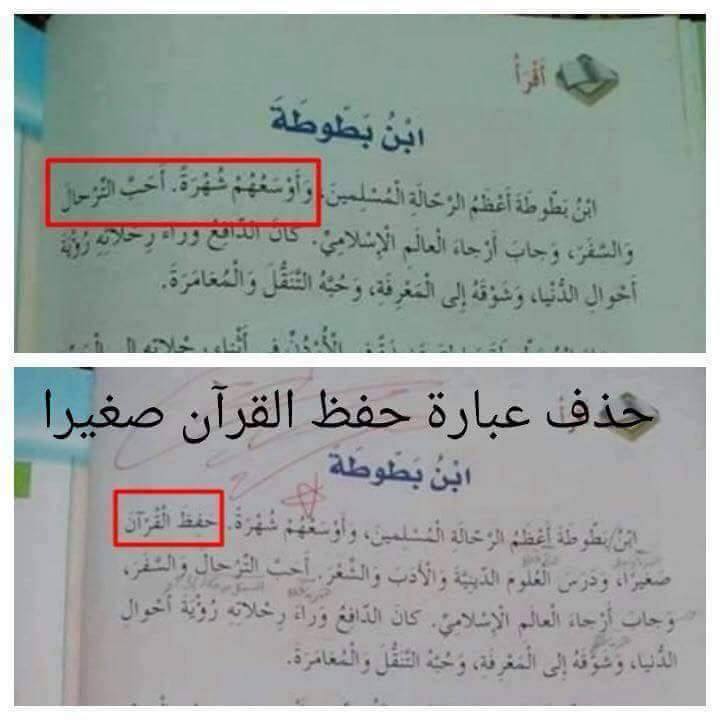 أَقْرَأُ
ابْنُ بَطّوطَةَ
ابْنُ بَطّوطَةَ أَعْظَمُ الرَّحّالَةِ الْمُسْلِمينَ، وَأَوْسَعُهُمْ شُهْرَةً. أَحَبَّ التَّرْحالَ
وَالسَّفَرَ، وَجابَ أَرْجاءَ الْعالَمِ الْإِسْلامِيِّ. كانَ الدّافِعُ وَراءَ رِحْلاتِهِ رُؤْيَةَ
أَحْوالِ الدُّنْيا، وَشَوْقَهُ إِلى الْمَعْرِفَةِ، وَحُبَّهُ التَّنَقُّلَ وَالْمُغامَرَةَ.
حذف عبارة حفظ القرآن صغيرا
ابْنُ بَطّوطَةَ
ابْنُ بَطّوطَةَ أَعْظَمُ الرَّحّالَةِ الْمُسْلِمينَ، وَأَوْسَعُهُمْ شُهْرَةً. حَفِظَ الْقُرْآنَ
صَغيرًا، وَدَرَسَ الْعُلومَ الدّينِيَّةَ وَالْأَدَبَ وَالشِّعْرَ. أَحَبَّ التَّرْحالَ وَالسَّفَرَ،
وَجابَ أَرْجاءَ الْعالَمِ الْإِسْلامِيِّ. كانَ الدّافِعُ وَراءَ رِحْلاتِهِ رُؤْيَةَ أَحْوالِ
الدُّنْيا، وَشَوْقَهُ إِلى الْمَعْرِفَةِ، وَحُبَّهُ التَّنَقُّلَ وَالْمُغامَرَةَ.